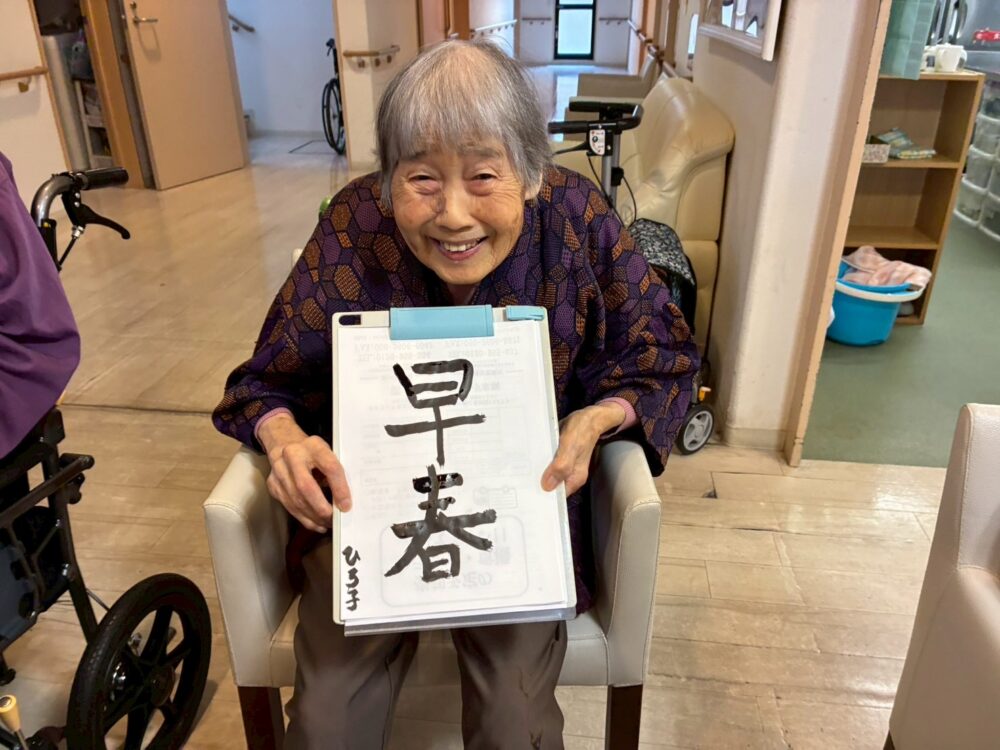 早春
ひろ子